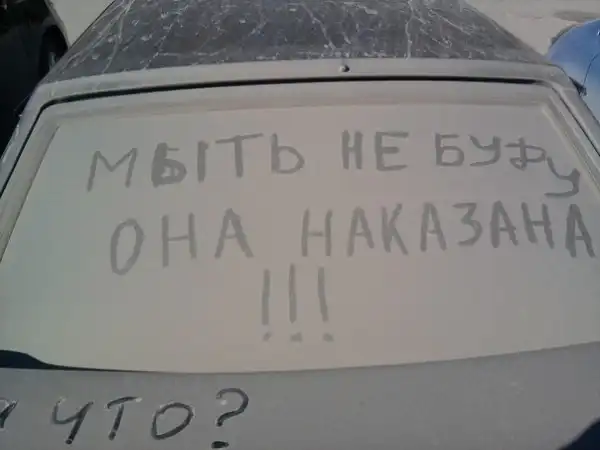 МЫТЬ НЕ БУДУ
ОНА НАКАЗАНА
!!!
ЧТО?